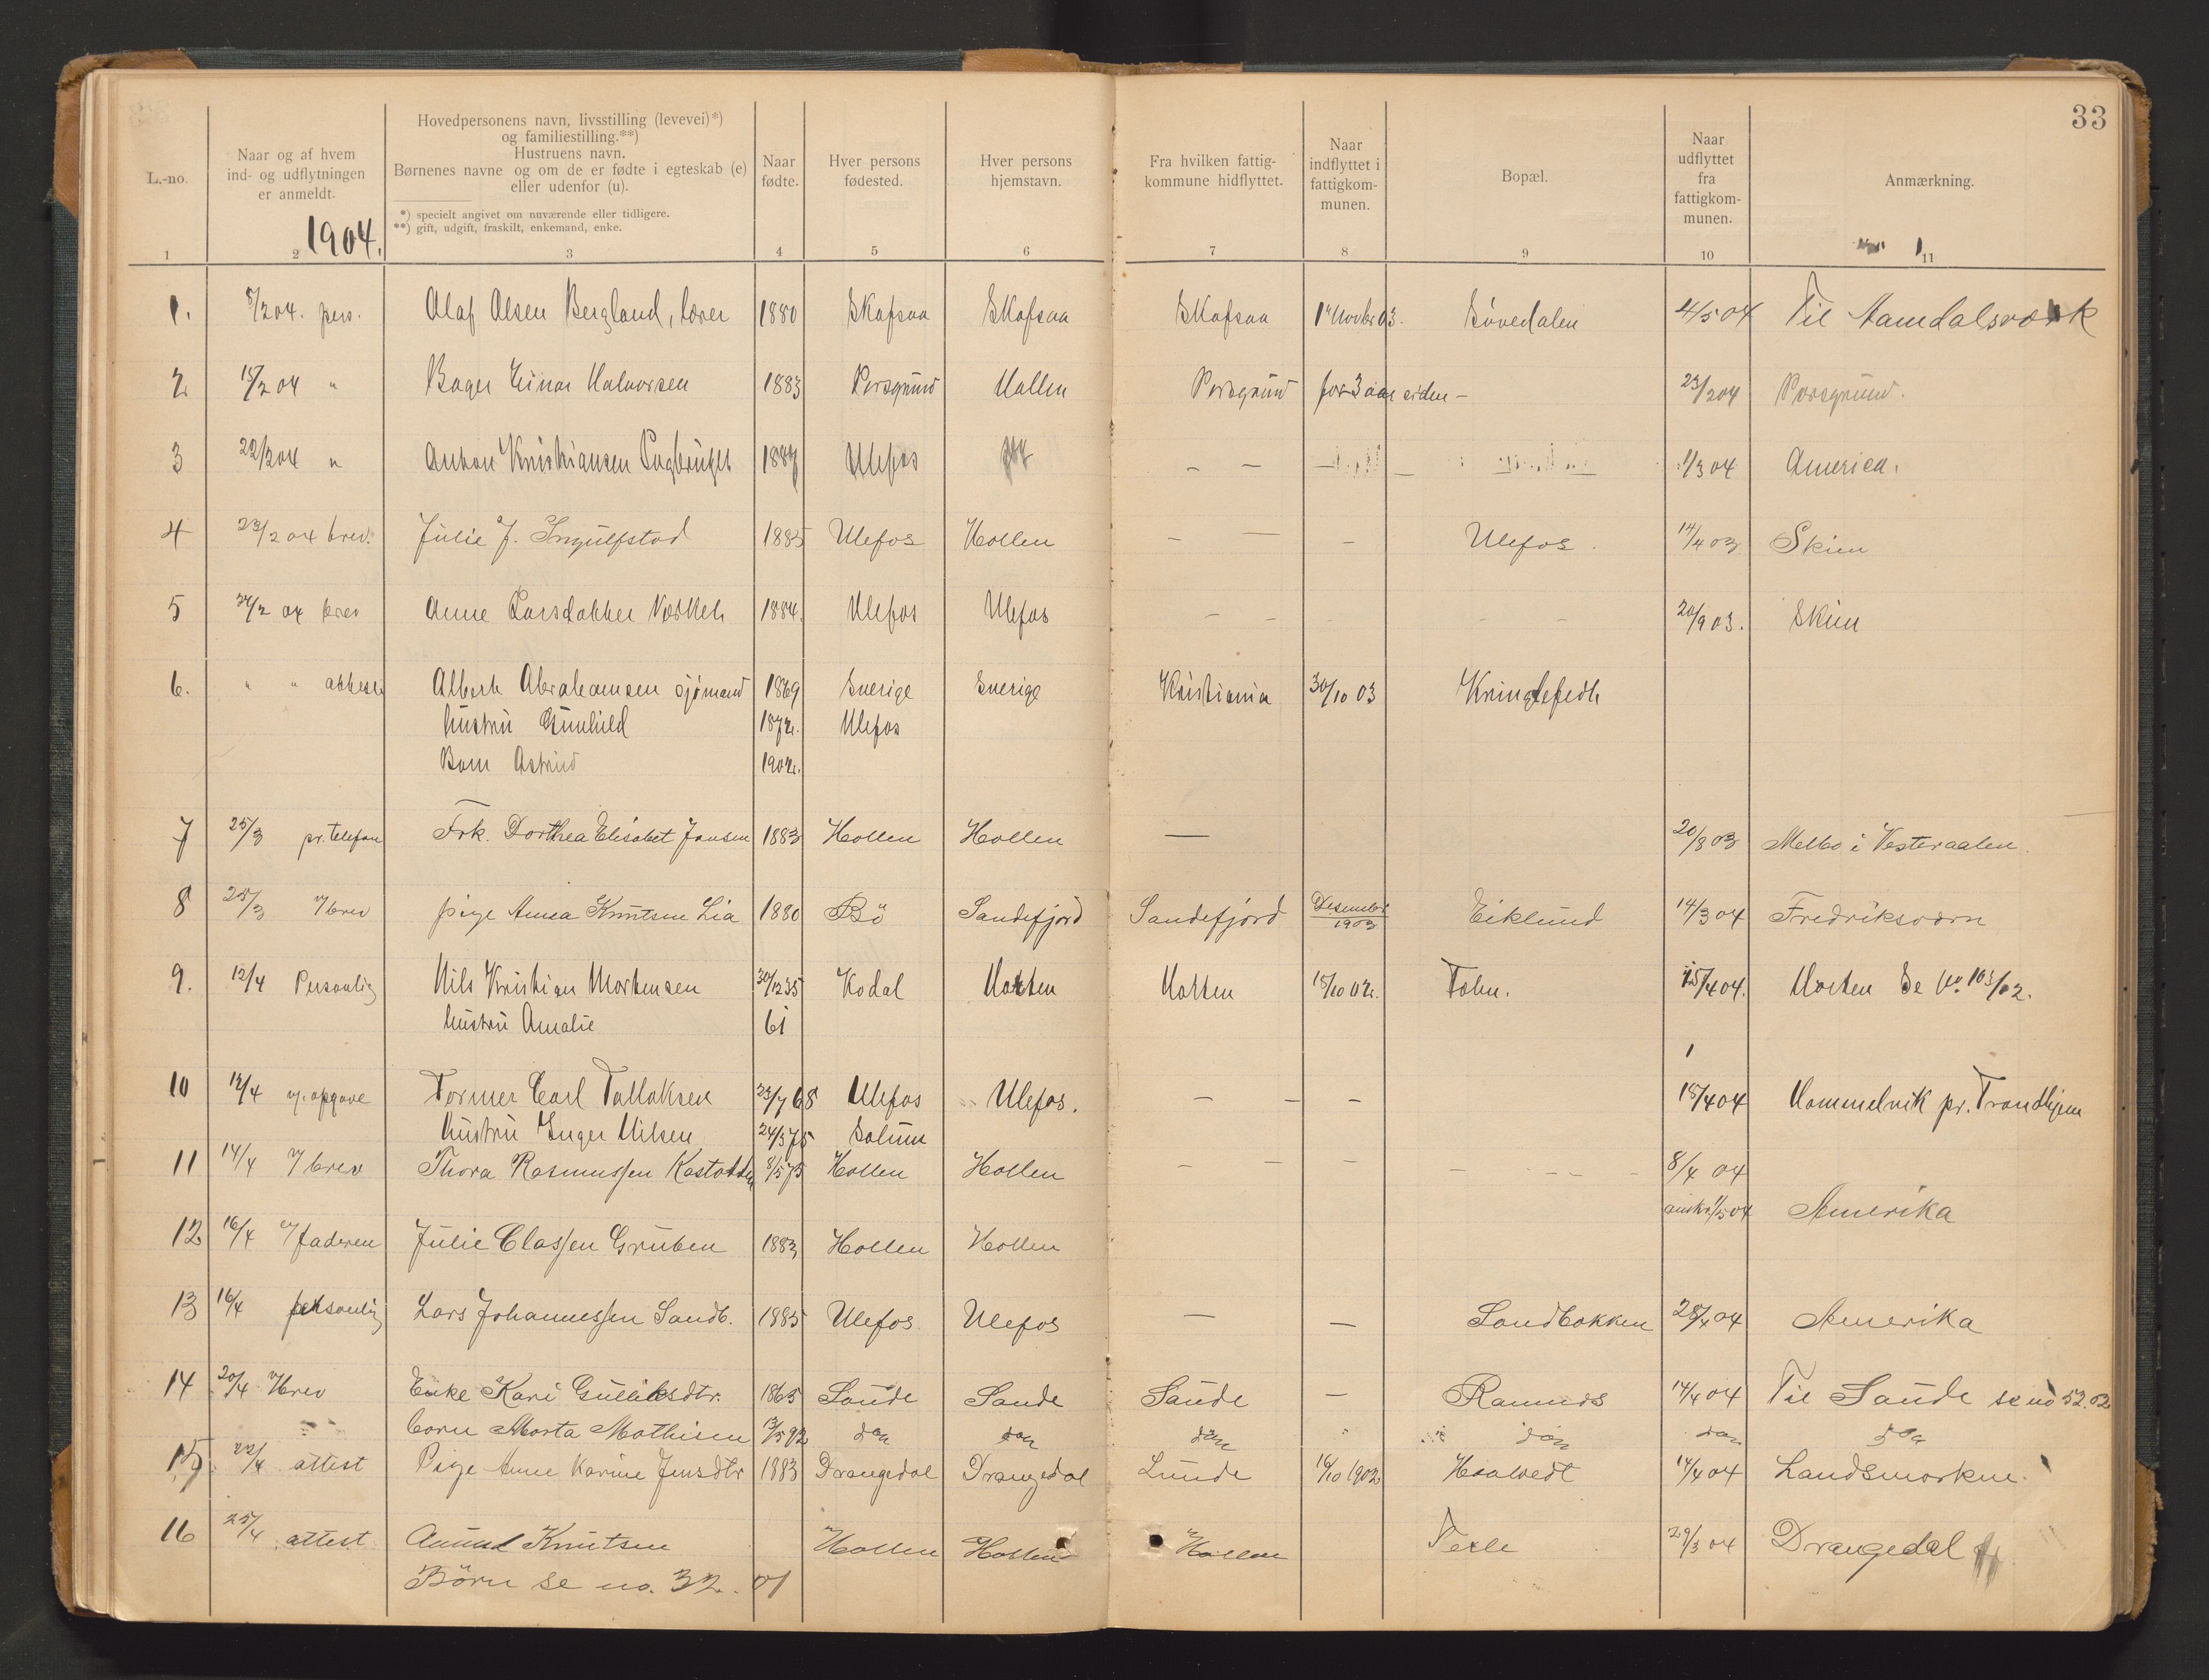 33
L.-no.
Naar og af hvem
ind- og udflytningen
er anmeldt.
1904.
Hovedpersonens navn, livsstilling (levevei)*)
og familiestilling.**)
Hustruens navn.
Børnenes navne og om de er fødte i egteskab (e)
eller udenfor (u).
*) specielt angivet om nuværende eller tidligere.
**) gift, udgift, fraskilt, enkemand, enke.
Naar
fødte.
Hver persons
fødested.
Hver persons
hjemstavn.
Fra hvilken fattig-
kommune hidflyttet.
Naar
indflyttet i
fattigkom-
munen.
Bopæl.
Naar
udflyttet
fra
fattigkom-
munen.
Anmærkning.
1 2 3 4 5 6 7 8 9 10 11
1. 8/2 04. pers. Olaf Olsen Bergland, lærer 1880 Skafsaa Skafsaa Skafsaa 1 Novber 03. Søvedalen 4/5 04 Til Aamdalsværk
2 15/2 04 " Bager Einar Halvorsen 1883 Porsgrund Hollen Porsgrund for 3 aar siden - 23/2 04 Porsgrund.
3 22/2 04 " Anton Kristiansen 1887 Ulefos - - - 1/3 04 America.
4 23/2 04 brev. Julie J. Ingulfstad 1885 Ulefos Hollen - - - Ulefos. 14/4 03 Skien
5 24/2 04 brev Anne Larsdatter Værket 1884. Ulefos Ulefos - - - - - 20/9 03. Skien
6. " " attest Albert Abrahamsen sjømand 1869 Sverige Sverige Kristiania 30/10 03 Kringlefedt
hustru Gunhild 1872. Ulefos
Barn Astrid 1902.
7 25/3 pr. telefon Frk. Dorthea Elisabet Jansen 1883 Hollen Hollen - 20/8 03 Melbo i Vesteraalen.
8 25/3 v/ brev pige Anna Knutsen Lia 1880 Bö Sandefjord Sandefjord Desember 1903 Eiklund 14/3 04 Fredriksværn
9. 12/4 Personlig Nils Kristian Mortensen 30/12 35 Kodal Horten Horten 15/10 02. Tolsn. 15/4 04. Horten Se No 103/02.
hustru Amalie 61
10 12/4 v. opgave Former Carl Tollaksen 23/7 68 Ulefos Ulefos. - - - 18/4 04 Hommelvik pr. Trondhjem
hustru Inger Nilsen 24/3 75 Solum
11 14/4 v/ brev Thora Rasmussen 8/5 75 Hollen Hollen - - - - - 8/4 04
12 16/4 v/ faderen Julie Classen Gruben 1883 Hollen Hollen 1/5 04 Amerika
13 16/4 personlig Lars Johannessen Sandb. 1885 Ulefos Ulefos - - Sandbakken 28/4 04 Amerika
14 20/4 v/ brev Enke Kari Gulliksdtr. 1865 Saude Saude Saude - Ramnes 14/4 04 Til Saude se no 52. 02
barn Marta Mathisen 13/5 92 do do do do do do
15 22/4 attest Pige Anne Karine Jensdtr 1883 Drangedal Drangedal Lunde 16/10 1902 Haatvedt 14/4 04 Landsmarken.
16 25/4 attest Aamund Knutsen Hollen Hollen Hollen 29/3 04 Drangedal
Börn se no. 32. 01